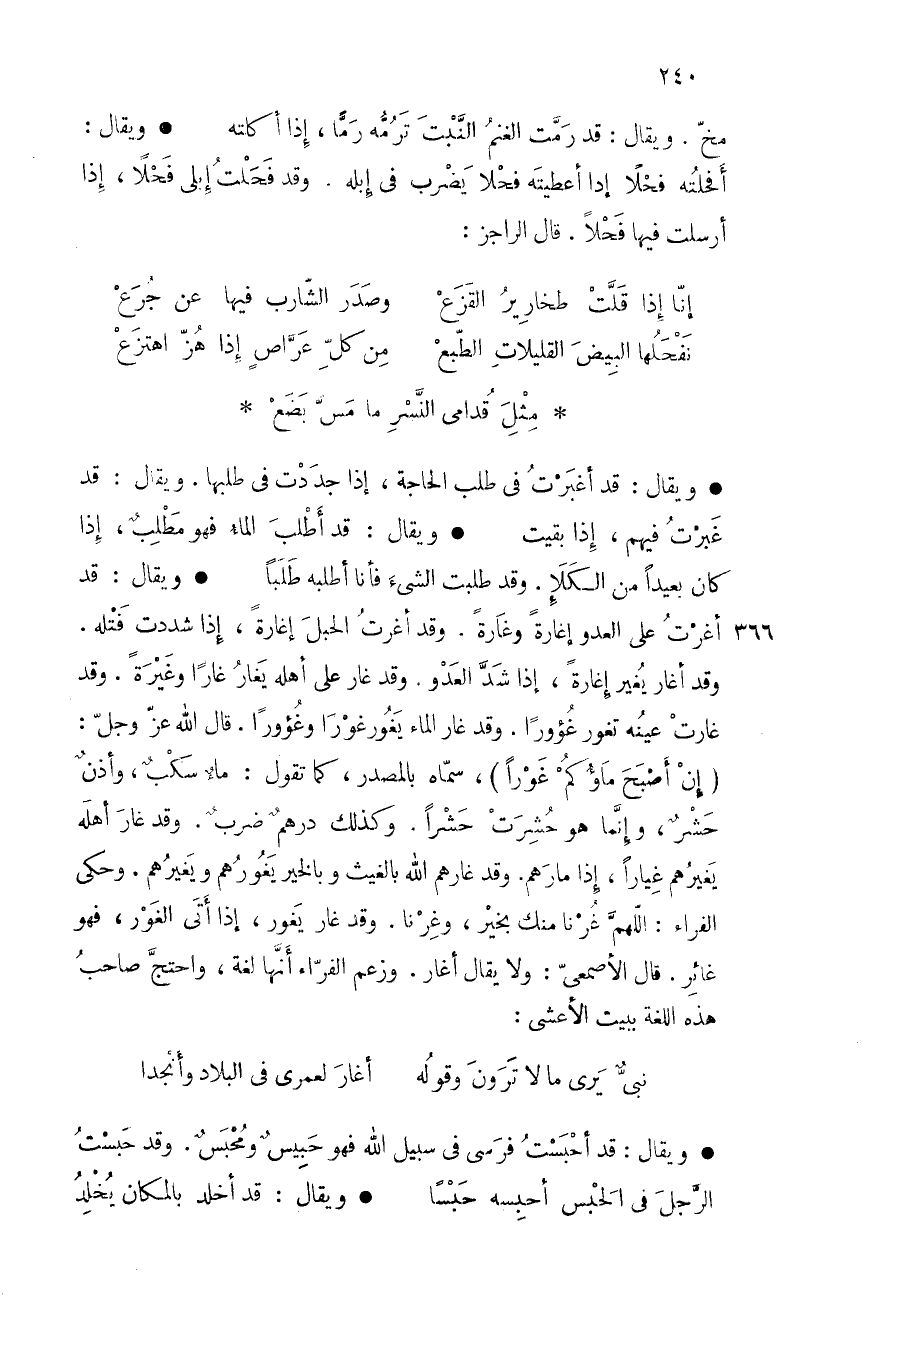 ٢٤٠
مخّ . ويقال : قد رَمَّت الغنمُ النَّبْتَ تَرُمُّه رَمًّا ، إِذا أكلته ● ويقال :
أَفحلتُه فحْلًا إدا أعطيتَه فحْلا يَضْرب فى إبله . وقد فَحَلْتُ إِبلى فَحْلًا ، إذا
أرسلت فيها فَحْلاً . قال الراجز :
إنّا إذا قَلَّتْ طخاريرُ القَزَعْ وصَدَر الشّارب فيها عن جُرَعْ
نَفْحَلُها البِيضَ القليلاتِ الطّبعْ مِن كلِّ عَرَّاصٍ إذا هُزّ اهتزَعْ
* مِثْلِ قُدامى النَّسْرِ ما مَسّ بَضَعْ *
● ويقال : قد أغبَرْتُ فى طلب الحاجة ، إذا جدَدْت فى طلبها . ويقال : قد
غَبَرْتُ فيهم ، إذا بقيت ● ويقال : قد أَطْلبَ الماء فهو مَطْلِبٌ ، إذا
كان بعيداً من الكَلَإِ . وقد طلبت الشىءَ فأنا أطلبه طَلَبَاً ● ويقال : قد
٣٦٦ أغرْتُ على العدو إغارةً وغَارةً . وقد أغرتُ الحبلَ إغارةً ، إذا شددت فَتْله .
وقد أغار يُغير إغارةً ، إذا شَدَّ العَدْو . وقد غار على أهله يَغارُ غارًا وغَيْرَةً . وقد
غارتْ عينُه تغور غُؤورًا . وقد غار الماء يَغُور غوْرًا وغُؤورًا . قال الله عزّ وجلّ :
( إِنْ أَصْبَحَ مَاؤُكُمْ غَوْراً ) ، سمّاه بالمصدر ، كما تقول : ماء سَكْبٌ ، وأذنٌ
حَشْرٌ ، وإنَّما هو حُشِرَتْ حَشْراً . وكذلك درهمٌ ضربٌ . وقد غارَ أهلَه
يَغيرُهم غِياراً ، إذا مارَهم . وقد غارهم الله بالغيث وبالخير يَغُورُهم ويَغيرُهم . وحكى
الفراء : اللّهمَّ غُرْنا منك بخيْر ، وغِرْنا . وقد غار يَغور ، إذا أَتى الغَوْر ، فهو
غائرِ . قال الأصمعىّ : ولا يقال أغار . وزعم الفرّاء أَنَّها لغة ، واحتجَّ صاحبُ
هذه اللغة ببيت الأعشى :
نبىٌّ يَرى ما لا تَرَونَ وقولُه أغارَ لعمرى فى البلاد وأَنْجدا
● ويقال : قد أحْبَسْتُ فرَسى فى سبيل الله فهو حَبِيسٌ ومُحْبَسٌ . وقد حَبَسْتُ
الرَّجلَ فى الحَبْس أحبِسه حَبْسًا ● ويقال : قد أخلد بالمكان يُخْلِدُ